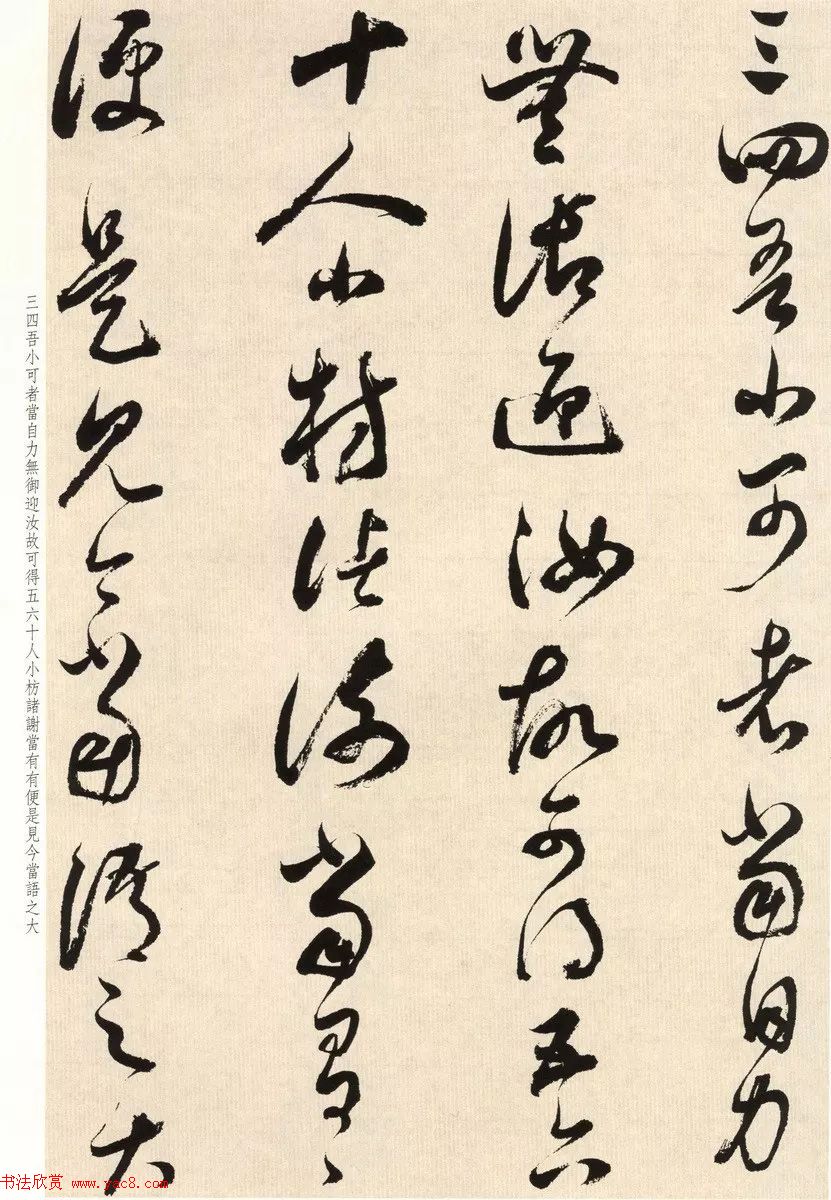 三四吾小可者當自力
無御迎汝故可得五六
十人小枋諸謝當有〻
便是見今當語之大
三四吾小可者當自力無御迎汝故可得五六十人小枋諸謝當有有便是見今當語之大
书法欣赏 www.yac8.com